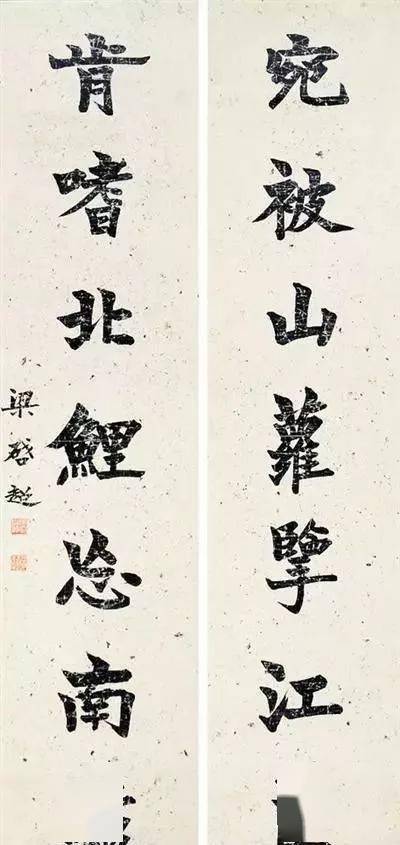 宛被山蘿擥江
肯嗜北鯉忘南
梁啓超